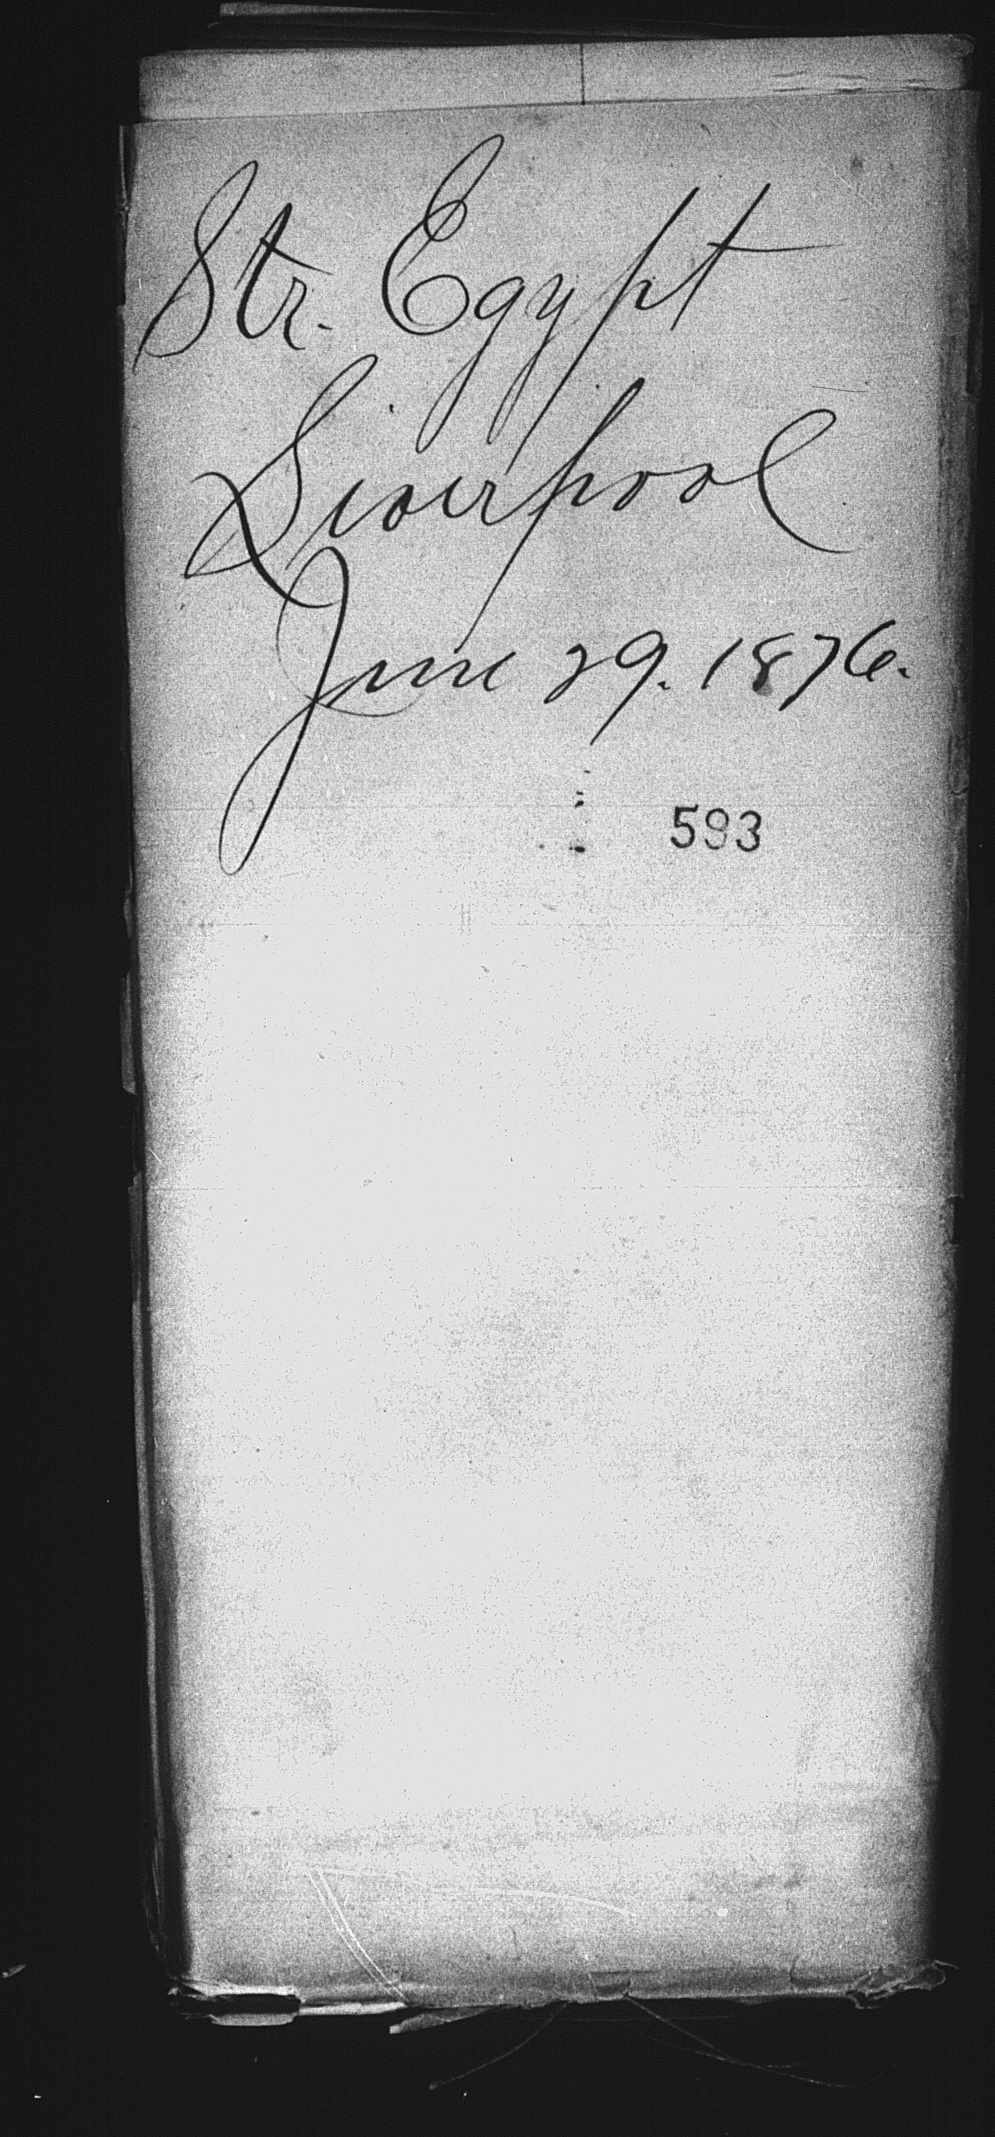 Str. Egypt
Liverpool
June 29. 1876.
593